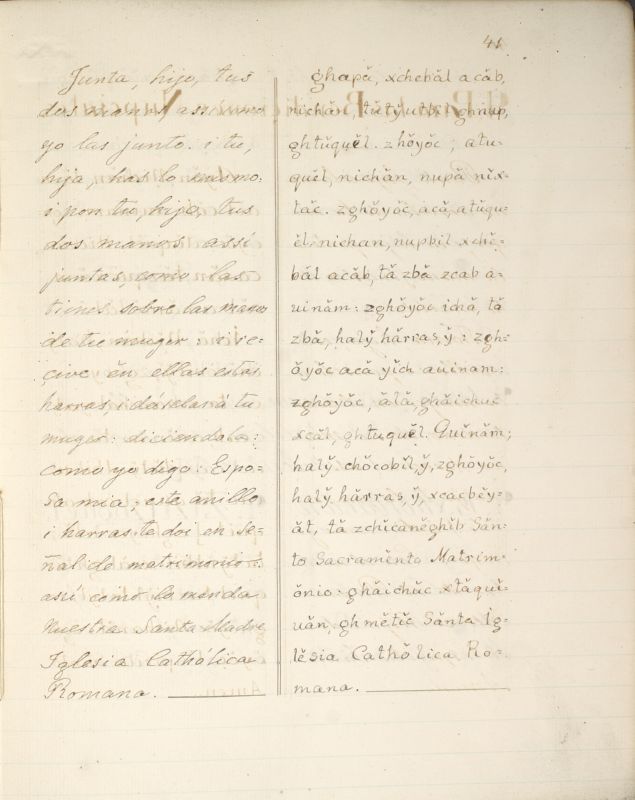 41
Junta, hijo, tus
dos manos assí como
yo las junto. i tu,
hija, has lo mismo:
i pon tu, hijo, tus
dos manos assí
juntas, como las
tienes sobre las manos
de tu muger: i re=
çive en ellas estas
harras, i dáselas á tu
muger: diciendola:
como yo digo: Espo=
sa mia; este anillo
i harras te doi en se=
ñal de matrimonio:
assí como lo manda
Nuestra Santa Madre
Iglesia Catholica
Romana.
ghapă, xchebăl acăb,
nichăn, ghnup,
ghtŭquĕl. zhŏyŏc; atu=
quĕl, nichăn, nupă nĭx=
tăc. zghŏyŏc, acă, atŭqu=
ĕl, nichan, nupbil xchĕ=
băl acăb, tă zbă zcab a=
uinăm: zghŏyŏc ichă, tă
zbă, haly̆ hărras, y̆: zgh=
ŏyŏc acă yĭch auinam:
zghŏyŏc, ălă, ghăichuc
xcăl, ghtuquĕl. Quĭnăm;
haly̆ chŏcobĭl, y̆, zghŏyŏc,
haly̆ hărras, y̆, xcacbĕy=
ăt, tă zchĭcanĕghĭb Săn=
to Sacramĕnto Matrim=
ŏnio: ghăichŭc xtăquĭ=
uăn, ghmĕtĭc Sănta Ig=
lĕsia Cathŏlica Ro=
mana.